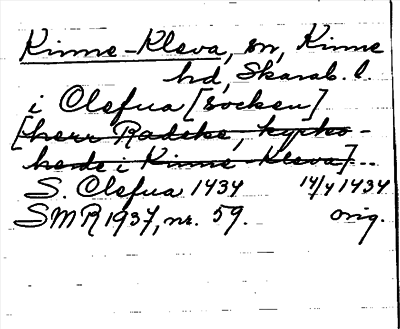 Kinne-Kleva, sn, Kinne
hd, Skarab. l.
i Clefua [socken]
[herr Radeke, kyrko-
herde i Kinne-Kleva]...
S. Clefua 1434 14/4 1434
SMR 1937, nr. 59. orig.